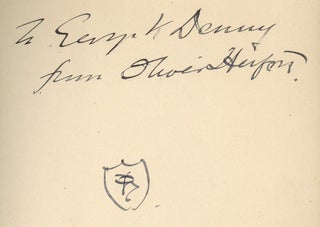 to George K Denny
from Oliver Herford.